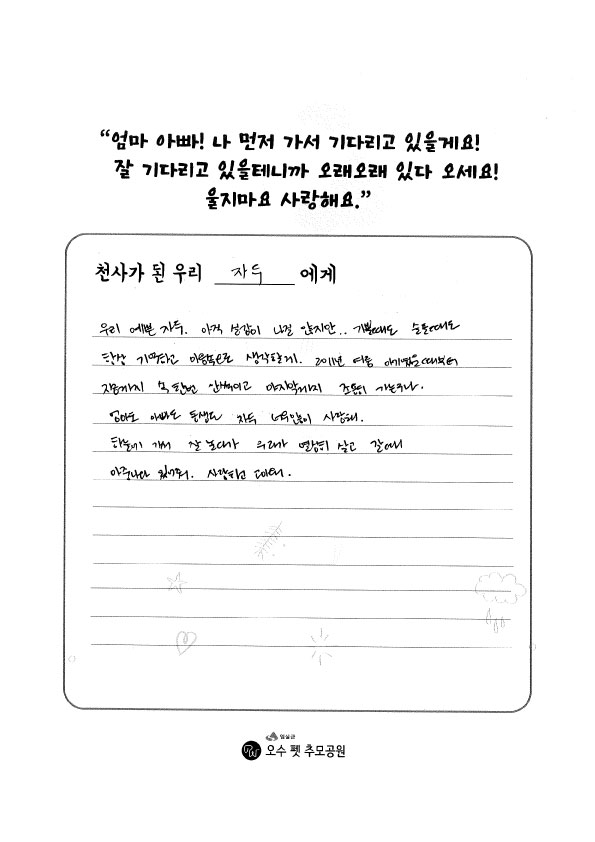 “엄마 아빠! 나 먼저 가서 기다리고 있을게요!
잘 기다리고 있을테니까 오래오래 있다 오세요!
울지마요 사랑해요.”
천사가 된 우리 자두 에게
우리 예쁜 자두. 아직 실감이 나질 않지만.. 기쁠때도 슬플때도
항상 기억하고 마음속으로 생각할게. 2011년 여름 아기였을때부터
지금까지 속 한번 안썩이고 마지막까지 조용히 가는구나.
엄마도 아빠도 동생도 자두 너무많이 사랑해.
하늘에 가서 잘 놀다가 우리가 열심히 살고 갈때
마중나와 있어줘. 사랑하고 고마워.
임실군
오수 펫 추모공원